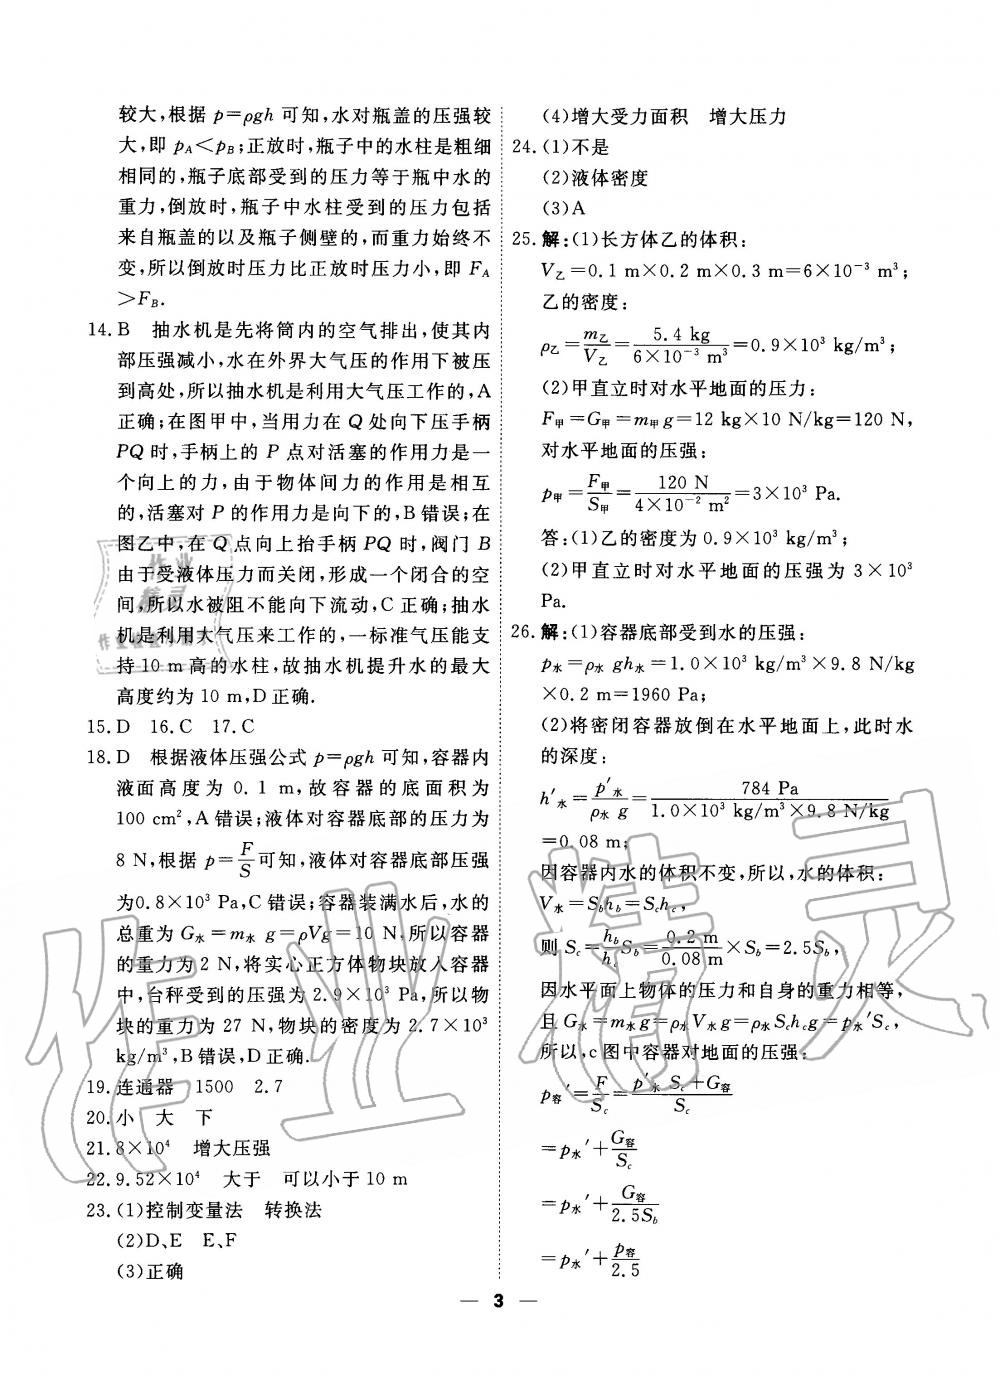 较大,根据 p=ρgh 可知,水对瓶盖的压强较
大,即 p_A<p_B;正放时,瓶子中的水柱是粗细
相同的,瓶子底部受到的压力等于瓶中水的
重力,倒放时,瓶子中水柱受到的压力包括
来自瓶盖的以及瓶子侧壁的,而重力始终不
变,所以倒放时压力比正放时压力小,即 F_A
>F_B.
14.B 抽水机是先将筒内的空气排出,使其内
部压强减小,水在外界大气压的作用下被压
到高处,所以抽水机是利用大气压工作的,A
正确;在图甲中,当用力在 Q 处向下压手柄
PQ 时,手柄上的 P 点对活塞的作用力是一
个向上的力,由于物体间力的作用是相互
的,活塞对 P 的作用力是向下的,B 错误;在
图乙中,在 Q 点向上抬手柄 PQ 时,阀门 B
由于受液体压力而关闭,形成一个闭合的空
间,所以水被阻不能向下流动,C 正确;抽水
机是利用大气压来工作的,一标准气压能支
持 10 m 高的水柱,故抽水机提升水的最大
高度约为 10 m,D 正确.
15.D 16.C 17.C
18.D 根据液体压强公式 p=ρgh 可知,容器内
液面高度为 0.1 m,故容器的底面积为
100 cm²,A 错误;液体对容器底部的压力为
8 N,根据 p=F/S可知,液体对容器底部压强
为0.8×10³ Pa,C 错误;容器装满水后,水的
总重为 G水=m水 g=ρVg=10 N,所以容器
的重力为 2 N,将实心正方体物块放入容器
中,台秤受到的压强为 2.9×10³ Pa,所以物
块的重力为 27 N,物块的密度为 2.7×10³
kg/m³,B 错误,D 正确.
19.连通器 1500 2.7
20.小 大 下
21.8×10⁴ 增大压强
22.9.52×10⁴ 大于 可以小于 10 m
23.(1)控制变量法 转换法
(2)D、E E、F
(3)正确
(4)增大受力面积 增大压力
24.(1)不是
(2)液体密度
(3)A
25.解:(1)长方体乙的体积:
V乙=0.1 m×0.2 m×0.3 m=6×10⁻³ m³;
乙的密度:
ρ乙=m乙/V乙=5.4 kg/(6×10⁻³ m³)=0.9×10³ kg/m³;
(2)甲直立时对水平地面的压力:
F甲=G甲=m甲g=12 kg×10 N/kg=120 N,
对水平地面的压强:
p甲=F甲/S甲=120 N/(4×10⁻² m²)=3×10³ Pa.
答:(1)乙的密度为 0.9×10³ kg/m³;
(2)甲直立时对水平地面的压强为 3×10³
Pa.
26.解:(1)容器底部受到水的压强:
p水=ρ水 gh水=1.0×10³ kg/m³×9.8 N/kg
×0.2 m=1960 Pa;
(2)将密闭容器放倒在水平地面上,此时水
的深度:
h′水=p′水/(ρ水 g)=784 Pa/(1.0×10³ kg/m³×9.8 N/kg)
=0.08 m;
因容器内水的体积不变,所以,水的体积:
V水=S_bh_b=S_ch_c,
则 S_c=(h_b/h_c)S_b=(0.2 m/0.08 m)×S_b=2.5S_b,
因水平面上物体的压力和自身的重力相等,
且 G水=m水g=ρ水V水g=ρ水S_ch_cg=p水′S_c,
所以,c图中容器对地面的压强:
p容′=F/S_c=(p′水 S_c+G容)/S_c
=p水′+G容/S_c
=p水′+G容/(2.5S_b)
=p水′+p容/2.5
— 3 —
作业精灵
作业
精灵